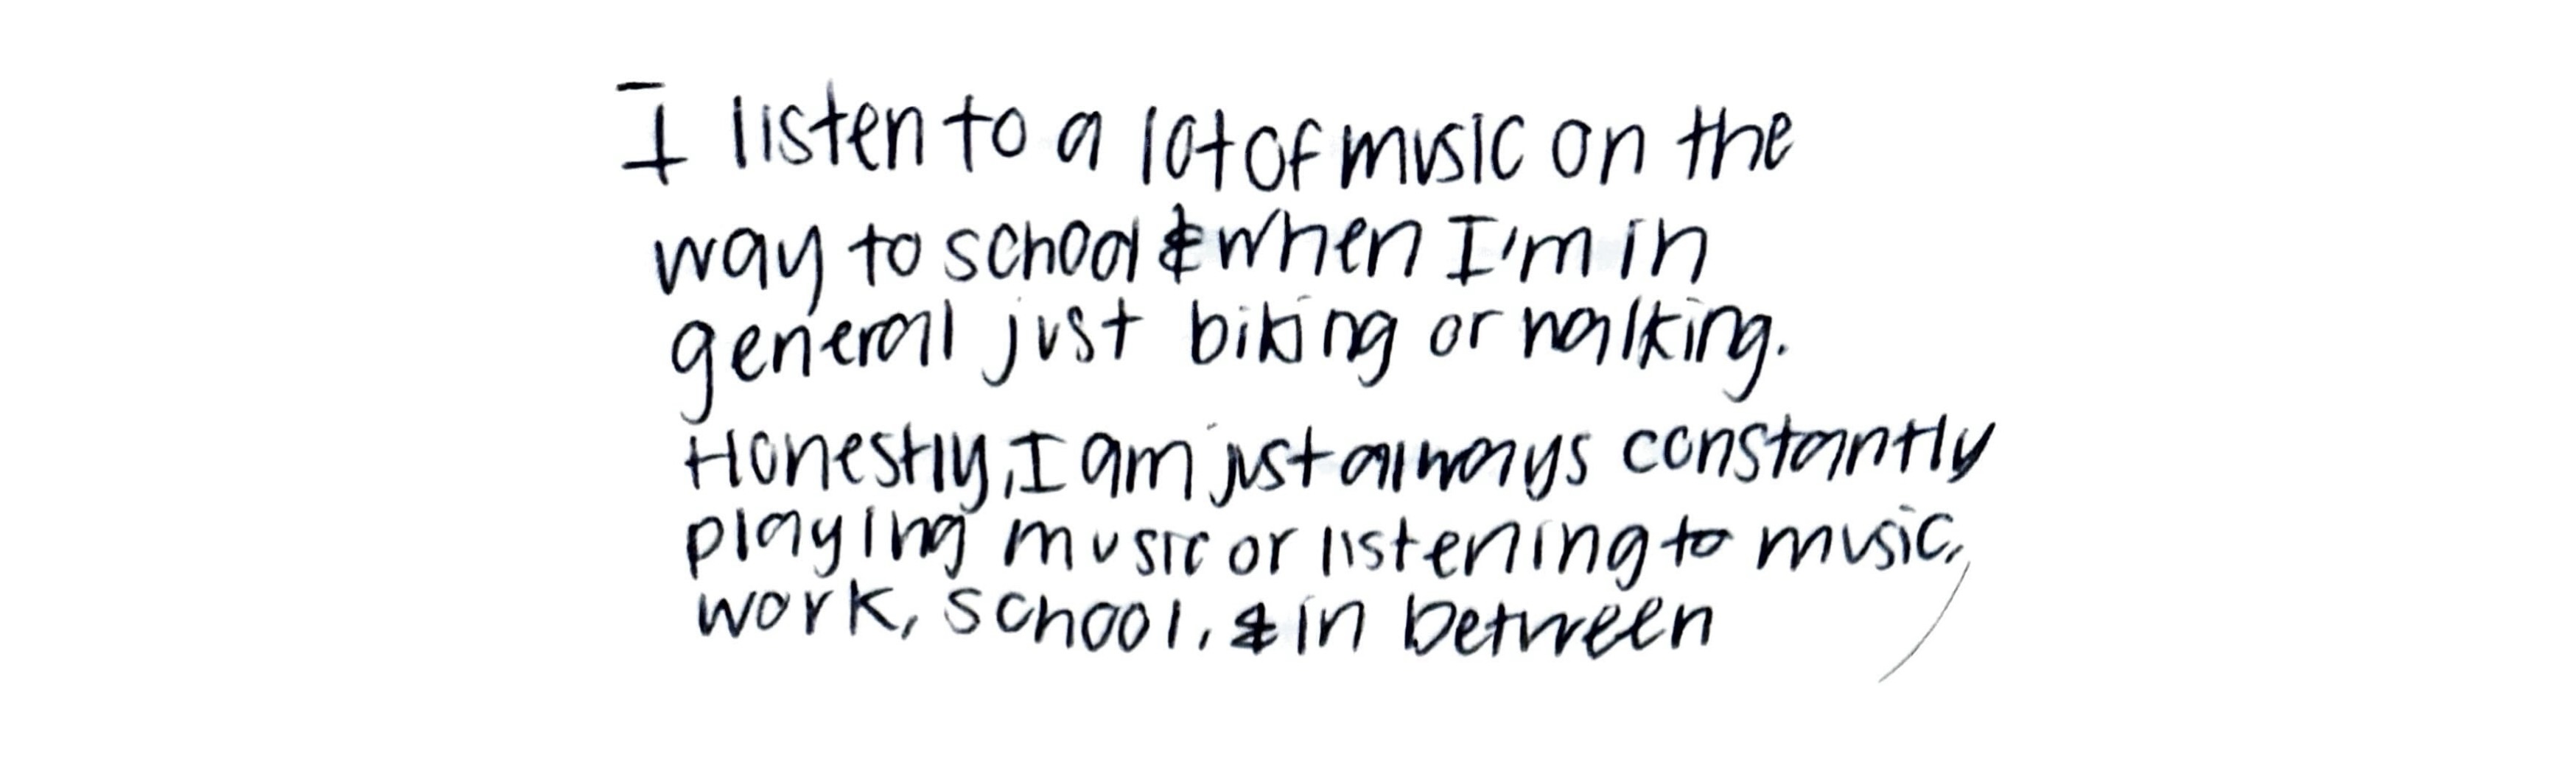 I listen to a lot of music on the
way to school & when I'm in
general just biking or walking.
Honestly, I am just always constantly
playing music or listening to music,
work, school, & in between